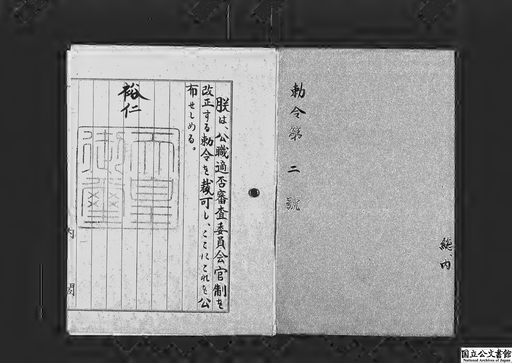 勅令第二號
総、内
朕は、公職適否審査委員会官制を
改正する勅令を裁可し、ここにこれを公
布せしめる。
裕仁
天皇
御璽
内閣
国立公文書館
National Archives of Japan